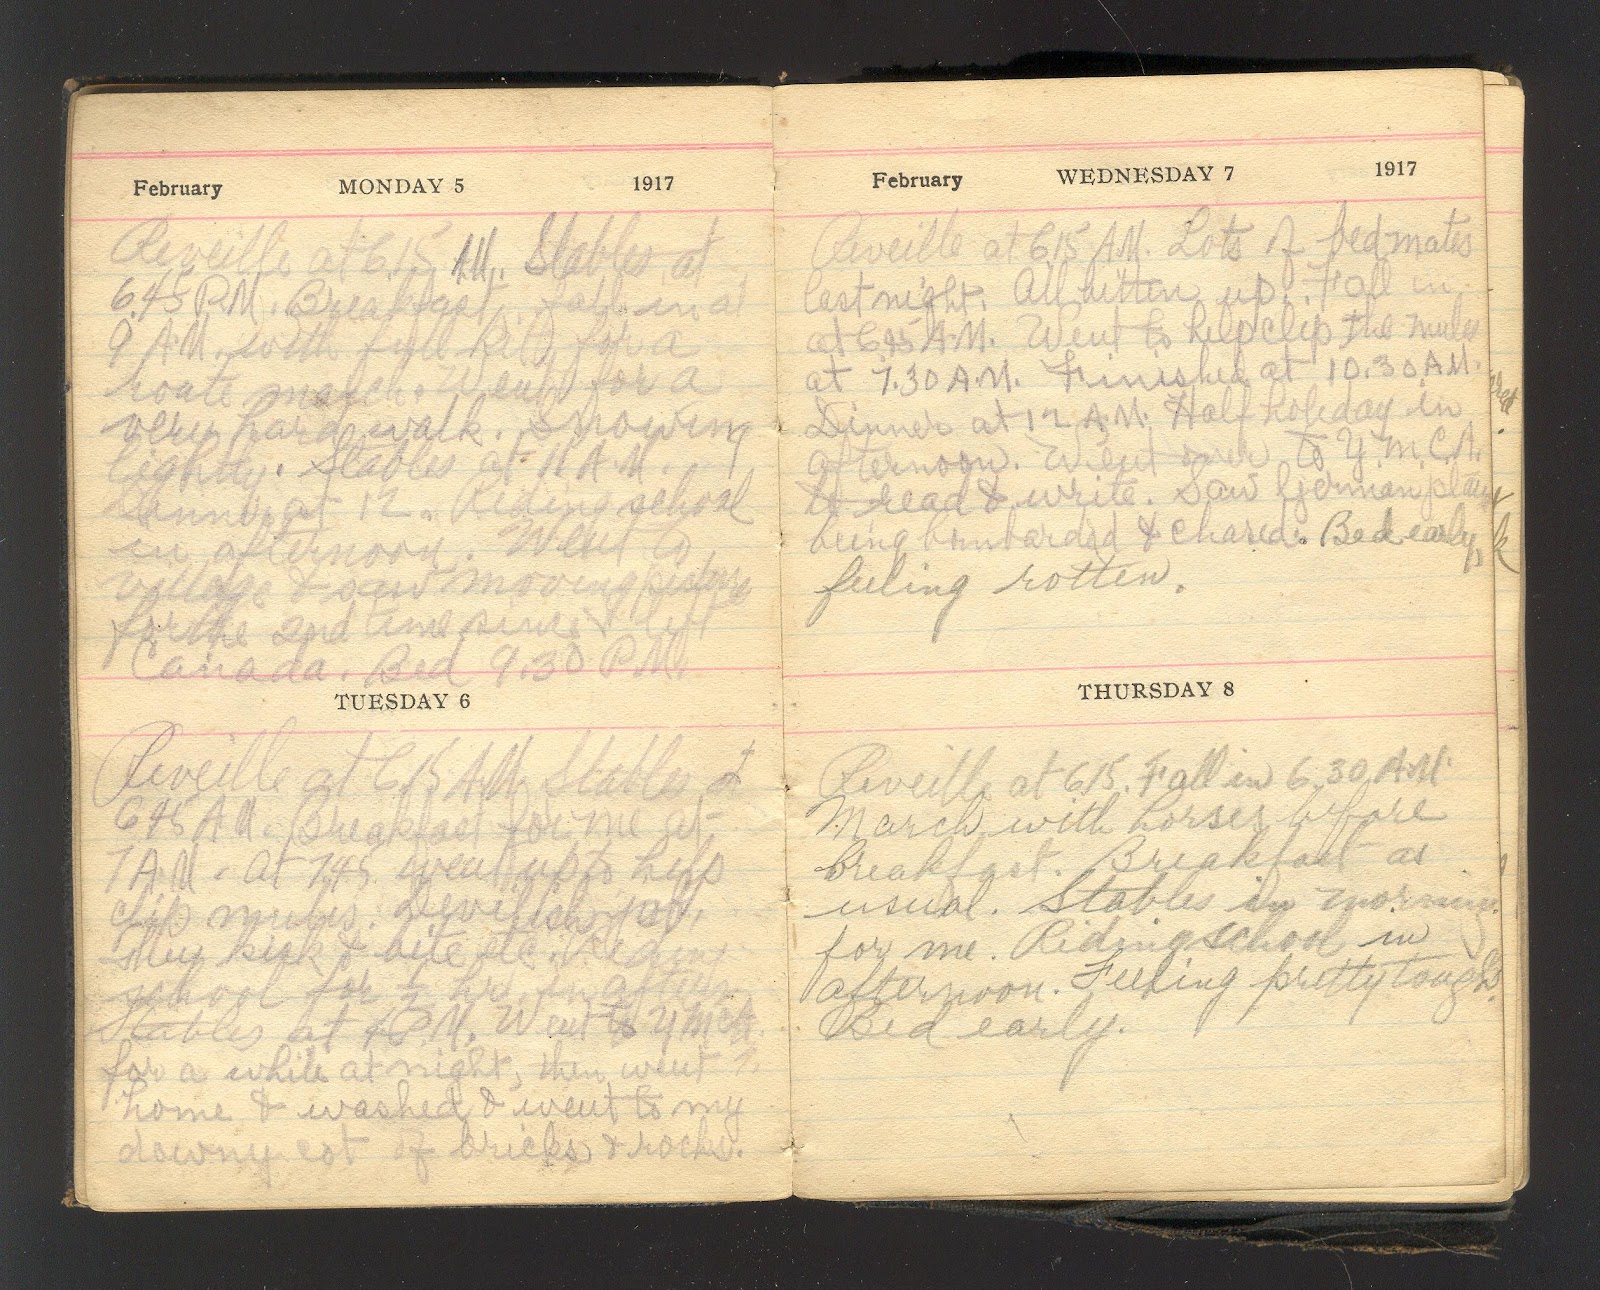 February MONDAY 5 1917
Reveille at 6.15 AM. Stables at
6.45 P.M. Breakfast. fall in at
9 A.M. with full kit for a
route march. Went for a
very hard walk. Snowing
lightly. Stables at 11 A.M.
Dinner at 12. Riding school
in afternoon. Went to
village & saw moving picture
for the 2nd time since I left
Canada. Bed 9.30 P.M.
TUESDAY 6
Reveille at 6.15 A.M. Stables at
6.45 A.M. Breakfast for me at
7 A.M. At 7.45 went up to help
clip mules. Devilish job,
They kick & bite etc. Riding
school for ½ hr. in aftern.
Stables at 4 P.M. Went to Y.M.C.A.
for a while at night, then went
home & washed & went to my
downy cot of bricks & rocks.
February WEDNESDAY 7 1917
Reveille at 6.15 A.M. Lots of bedmates
last night. All bitten up. Fall in
at 6.45 A.M. Went to help clip the mules
at 7.30 A.M. Finished at 10.30 A.M.
Dinner at 12 A.M. Half holiday in
afternoon. Went over to Y.M.C.A.
to read & write. Saw German plane
being bombarded & chased. Bed early,
feeling rotten.
THURSDAY 8
Reveille at 615. Fall in 6.30 A.M.
March with horses before
breakfast. Breakfast as
usual. Stables in morning
for me. Riding school in
afternoon. Feeling pretty tough.
Bed early.